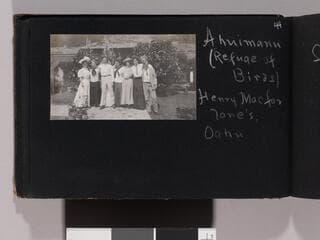 Ahuimanu
(Refuge of
Birds)
Henry Macfar
lane's,
Oahu